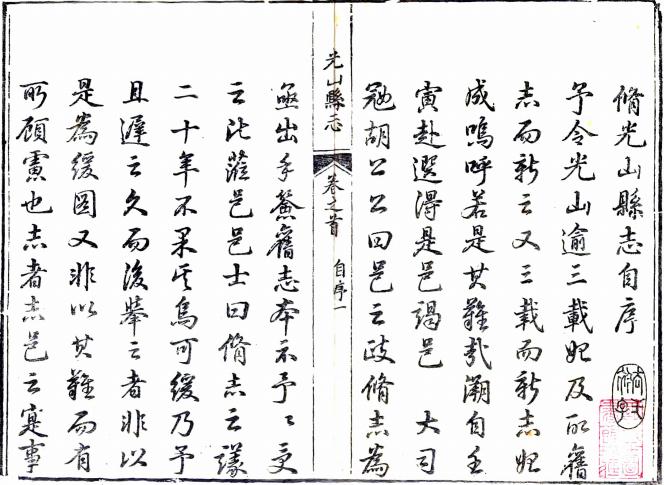 脩光山縣志自序
予令光山逾三載始及取舊
志而新之又三載而新志始
成嗚呼若是其難哉溯自壬
寅赴選得是邑謁邑 大司
冠胡公公曰邑之政脩志為
亟出手鰲舊志本示予予受
之沘蒞邑邑士曰脩志之議
二十年不果矣烏可緩乃予
且遲之久而後舉之者非以
是為緩圖又非以其難而有
所顧慮也志者志邑之寔事
光山縣志 卷之首 自序一